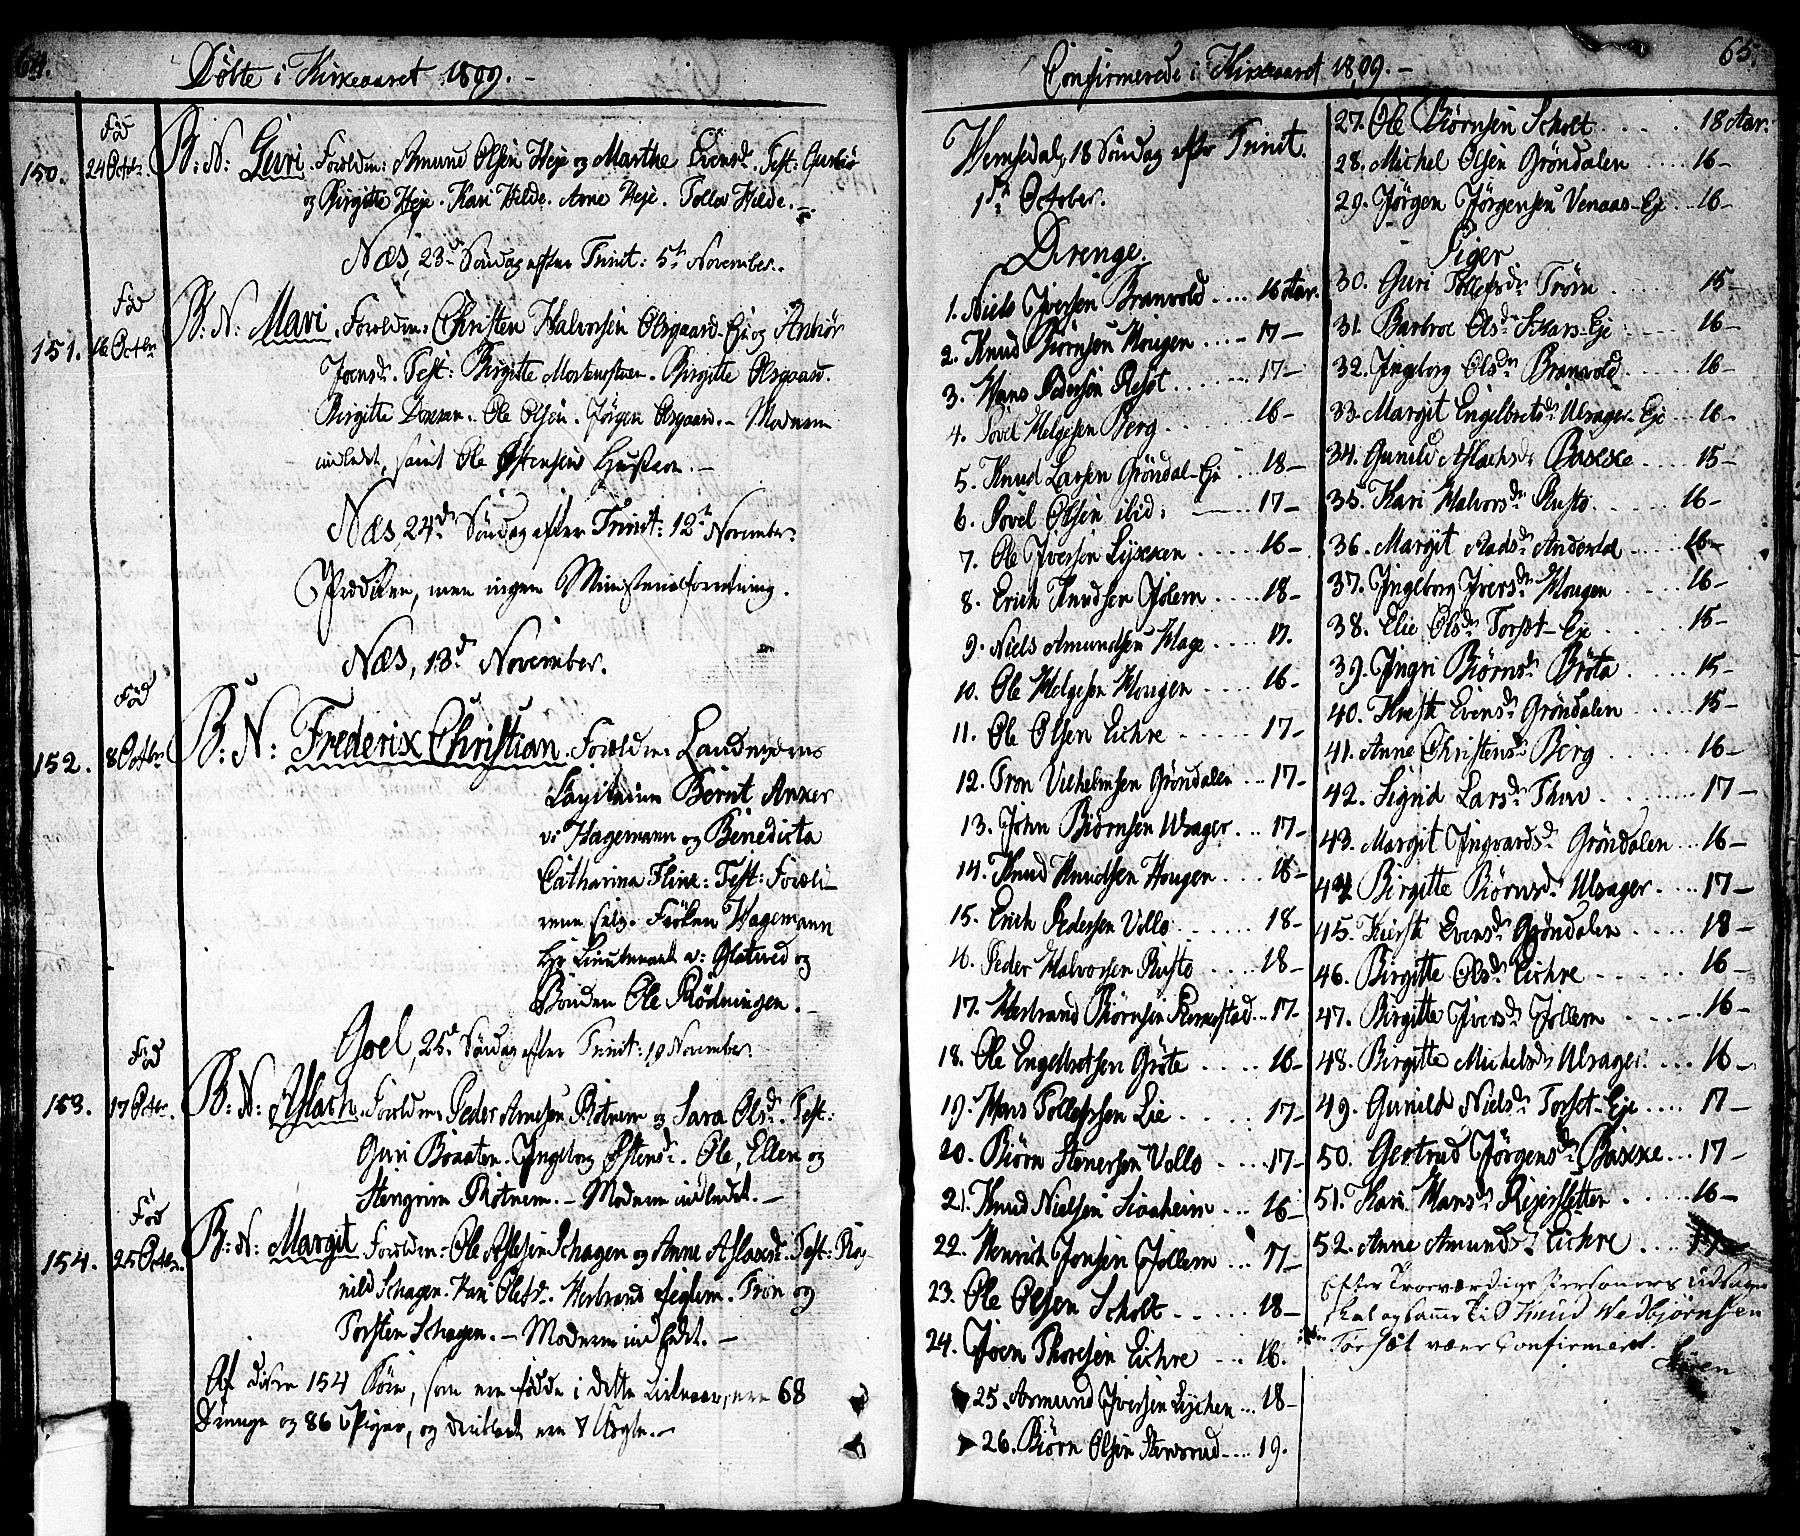 64.
Döbte i Kirkeaaret 1809.-
Fød
150. 24 Octbr. B: N: Guri. Forældre: Amund Olsen Heje og Marthe Evensd. Test:
og Birgitte Heje. Kari Hilde. Arne Heje. Tollev Hilde.-
Næs, 23de Söndag efter Trinit: 5te November.
Fød
151. 16 Octbr B: N: Mari. Forældre: Christen Halvorsen Olsgaard-Eje og
Joensd. Test: Birgitte Birgitte Olsgaard.
Birgitte Ole Olsen. Jörgen Olsgaard.- Moderen
indledt, samt Ole Østensens Hustrue.-
Næs, 24de Söndag efter Trinit: 12te November.
Prædiken, men ingen Ministerialforretning.
Næs, 13de November.
Fød
152. 8 Octbr. B: N: Frederik Christian. Forældre:
Bernt Anker
v: Hagemann og Benedicta
Catharina Fline: Test: Foræl-
rene selv. Frøken Hagemann
Hr Lieutenant v: og
Bonden Ole Rödningen.-
Goel, 25de Söndag efter Trinit: 19 November.
Fød
153. 17 Octbr. B: N: Aslach. Forældre: Peder Arnesen Rotnem og Sara Olsd. Test:
Guri Braaten. Ingeborg Østensd. Ole, Ellen og
Stengrim Rotnem.- Moderen indledet.-
Fød
154. 25 Octbr. B: N: Margit. Forældre: Ole Aslesen Schagen og Anne Aslaksd. Test: Rag-
nild Schagen. Kari Olesd. Herbrand Tron og
Torsten Schagen.- Moderen indledt.-
Af disse 154 Börn, som ere födde i dette ere 68
Drenge og 86 Piger, og deriblant ere 8 Uægte.-
65.
Confirmerede i Kirkeaaret 1809.-
Hemsedal, 18 Söndag efter Trinit.
1ste October.
Drenge.
1. Niels Iversen Branvold .... 16 Aar.
2. Knud Biörnsen Hougen .... 17-
3. Hans Pedersen ..... 17-
4. Povel Helgesen Berg ..... 16-
5. Knud Larsen Gröndal-Eje .. 18-
6. Povel Olsen ibid: ..... 17-
7. Ole Iversen Lykken ..... 16-
8. Erich Knudsen Jolem .... 18-
9. Niels Amundsen Hage .... 17.
10. Ole Helgesen Hougen .... 16-
11. Ole Olsen Eichre ..... 17-
12. Tron Vilhelmsen Gröndalen ... 17-
13. John Biörnsen Ulsager ... 17-
14. Knud Knudsen Hougen .... 18-
15. Erich Pedersen Vollo ..... 18-
16. Peder Halvorsen Rusto .... 18-
17. Herbrand Biörnsen ... 17-
18. Ole Engelbretsen Gröte .... 16-
19. Hans Tollefssen Lie ..... 17-
20. Biörn Stenersen Vollo .... 17-
21. Knud Nielsen ... 16-
22. Henrich Jonsen Jollem ... 17-
23. Ole Olsen Scholt ..... 18-
24. Joen Thoresen Eichre ... 16.
25. Asmund Iversen Lychen ... 18-
26. Biörn Olsen ... 19.
27. Ole Biörnsen Scholt ..... 18 Aar.
28. Michel Olsen Gröndalen ..... 16-
29. Jörgen Jörgensen Venaas-Eje .. 16-
Piger
30. Guri Tollefsdr Tröim ..... 15-
31. Barbroe Olsdr Skars-Eje ..... 16-
32. Ingeborg Olsdr Branvold ..... 16-
33. Margit Engelbretsdr Ulsager-Eje ... 16-
34. Gunild Aslachsdr Bakke .... 15-
35. Kari Halvorsdr Rusto ..... 16-
36. Margit ..... 16-
37. Ingeborg Iversdr Hougen ..... 16-
38. Elie Olsdr Torset-Eje ..... 15-
39. Ingri Biörnsdr Bröta ..... 15-
40. Kirsti Evensdr Gröndalen ..... 15-
41. Anne Christensdr Berg ..... 16-
42. Sigrid Larsdr ..... 17-
43. Margit Ingvardsdr Gröndalen ... 16-
44. Birgitte Biörnsdr Ulsager .... 17-
45. Kirsti Evensdr Gröndalen .... 18-
46. Birgitte Olsdr Eichre ..... 16-
47. Birgitte Iversdr Jollem ..... 16-
48. Birgitte Michelsdr Ulsager ... 16-
49. Gunild Nielsdr Torset-Eje .... 17-
50. Gertrud Jörgensdr Bakke ... 17-
51. Kari Hansdr ..... 16-
52. Anne Amundsdr Eichre .... 17-
Efter Troeværdige Personers Udsagn
skal ogsaa Knud Wedbjörnsen
Torset være Confirmeret.